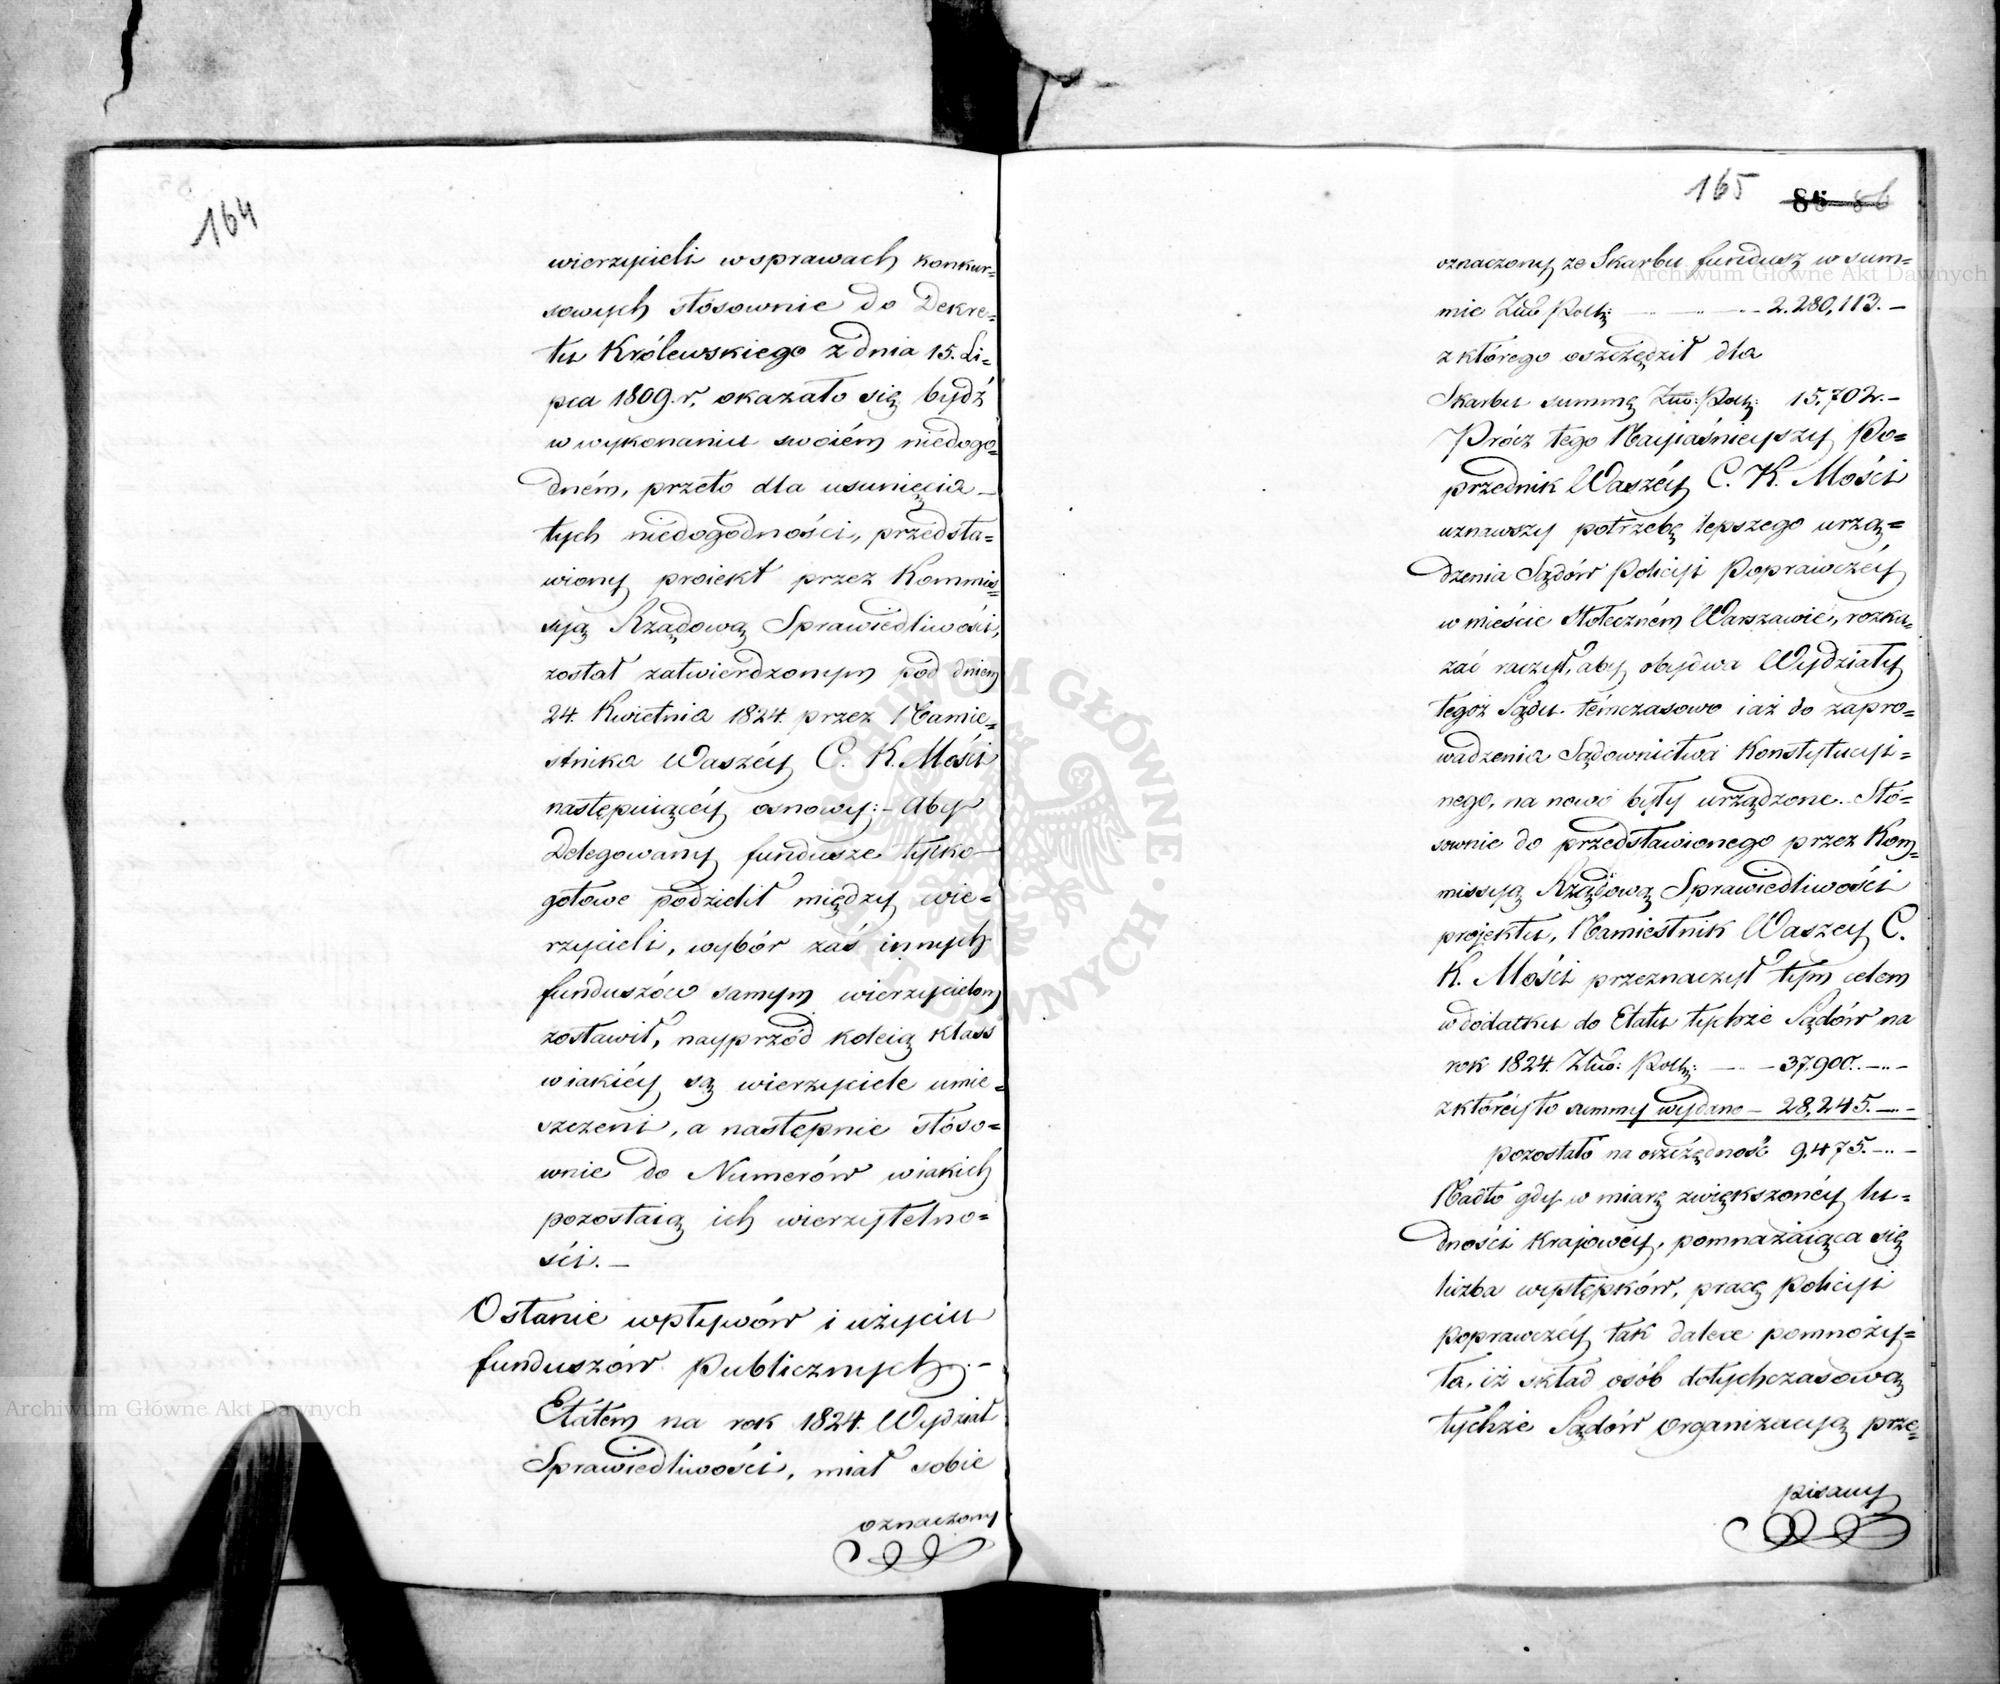 164
wierzycieli w sprawach konkur=
sowych stósownie do Dekre=
tu Królewskiego z dnia 15. Li=
pca 1809. r. okazało się bydź
w wykonaniu swoiém niedogo=
dném, przeto dla usunięcia –
tych niedogodności, przedsta=
wiony proiekt przez Kommis=
syą Rządową Sprawiedliwości,
został zatwierdzonym pod dniem
24. Kwietnia 1824. przez Namie=
stnika Waszéy C. K. Mości
następuiącéy osnowy: – Aby
Delegowany fundusze tylko –
gotowe podzielił między wie=
rzycieli, wybór zaś innych
funduszów samym wierzycielom
zostawił, nayprzód koleią klass
w iakiéy są wierzyciele umie=
szczeni, a następnie stóso=
wnie do Numerów w iakich
pozostaią ich wierzytelno=
ści. –
O stanie wpływów i użyciu
funduszów publicznych. –
Etatem na rok 1824. Wydział
Sprawiedliwości, miał sobie
oznaczony
165 85 86
oznaczony ze Skarbu fundusz w sum=
mie Złw. Polk: 2.280,113. –
z którego oszczędził dla
Skarbu summę Złw: Polk: 15.702. –
Prócz tego Nayiaśnieyszy Po=
przednik Waszéy C. K. Mości
uznawszy potrzebę lepszego urzą=
dzenia Sądów Policyi Poprawczéy
w mieście Stołeczném Warszawie, rozka=
zać raczył, aby obydwa Wydziały
tegoż Sądu témczasowo i aż do zapro=
wadzenia Sądownictwa Konstytucyi=
nego, na nowo były urządzone. Stó=
sownie do przedstawionego przez Kom=
missyą Rządową Sprawiedliwości
projektu, Namiestnik Waszéy C.
K. Mości przeznaczył tym celem
w dodatku do Etatu tychże Sądów na
rok 1824. Złw: Polk: – 37.900. –
z któréy to summy wydano – 28,245. –
pozostało na oszczędność 9.475. –
Nadto gdy w miarę zwiększonéy lu=
dności krajowéy, pomnażaiąca się
liczba występków, pracę Policyi
poprawczéy tak dalece pomnoży=
ła, iż skład osób dotychczasową
tychże Sądów organizacyą prze=
pisany
Archiwum Główne Akt Dawnych
Archiwum Główne Akt Dawnych
ARCHIWUM GŁÓWNE · AKT DAWNYCH ·